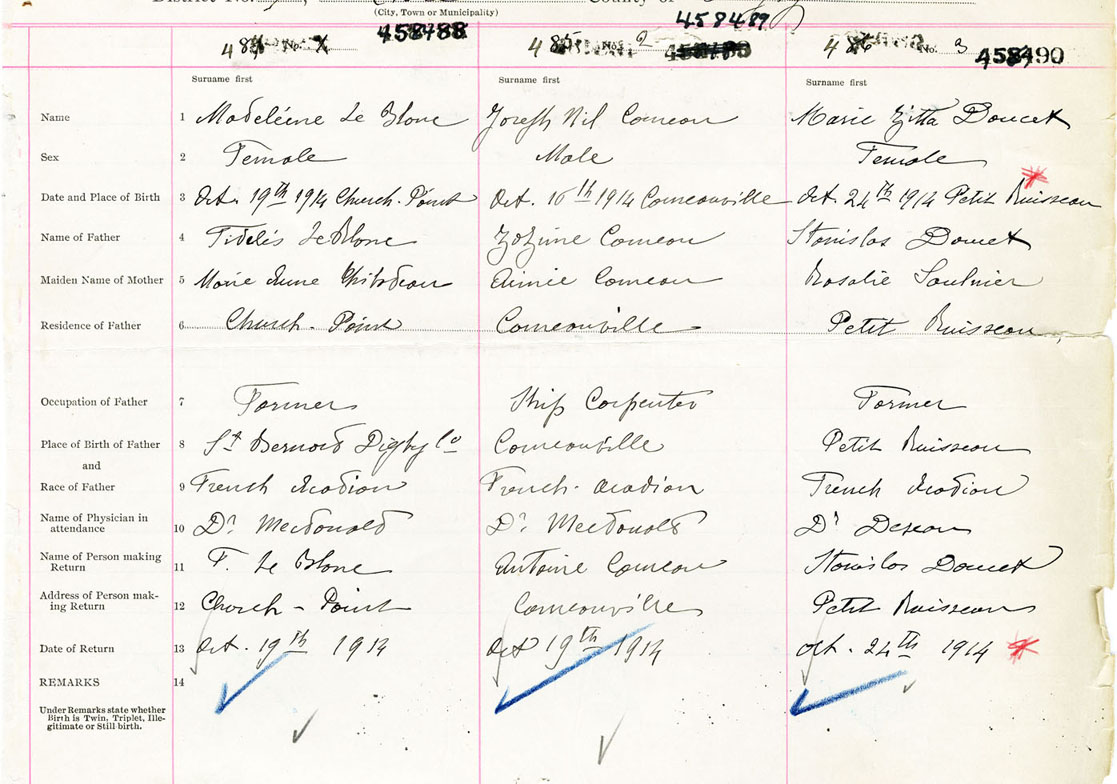 District No. County of
(City, Town or Municipality)
458489
48 No. 458488 48 No. 2 48 No. 3 458490
Surname first Surname first Surname first
Name 1 Madeleine Le Blanc Joseph Nil Comeau Marie Zitta Doucet
Sex 2 Female Male Female
Date and Place of Birth 3 Oct. 19th 1914 Church-Point Oct. 16th 1914 Comeauville Oct. 24th 1914 Petit Ruisseau
Name of Father 4 Fidelis LeBlanc Zozime Comeau Stanislas Doucet
Maiden Name of Mother 5 Marie Anne Thibodeau Aimie Comeau Rosalie Saulnier
Residence of Father 6 Church-Point Comeauville Petit Ruisseau
Occupation of Father 7 Farmer Ship Carpenter Farmer
Place of Birth of Father 8 St Bernard Digby Co Comeauville Petit Ruisseau
and
Race of Father 9 French Acadian French-Acadian French Acadian
Name of Physician in
attendance 10 Dr MacDonald Dr MacDonald Dr
Name of Person making
Return 11 F. Le Blanc Antoine Comeau Stanislas Doucet
Address of Person mak-
ing Return 12 Church-Point Comeauville Petit Ruisseau
Date of Return 13 Oct. 19th 1914 Oct 19th 1914 Oct. 24th 1914
REMARKS 14
Under Remarks state whether
Birth is Twin, Triplet, Ille-
gitimate or Still birth.